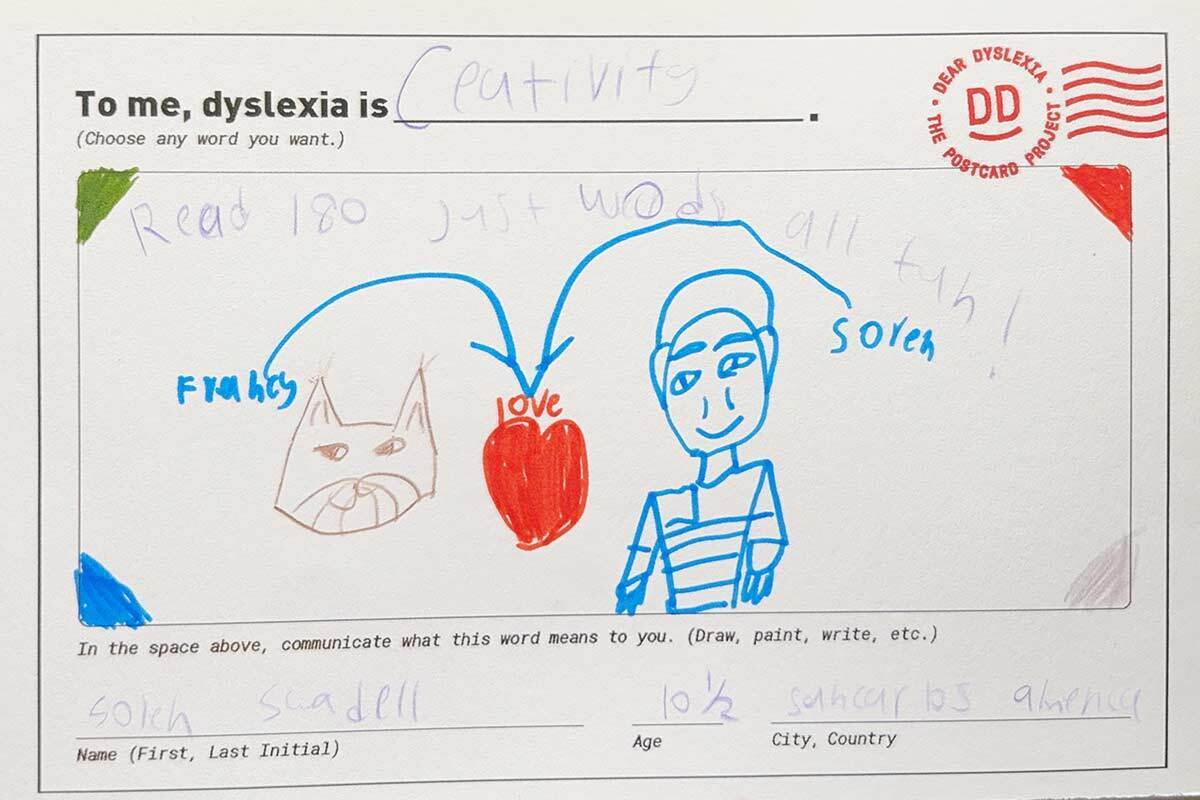 To me, dyslexia is Ceativity.
(Choose any word you want.)
• DEAR DYSLEXIA • THE POSTCARD PROJECT
DD
Read 180 just wods all tyh!
Francy
soren
love
In the space above, communicate what this word means to you. (Draw, paint, write, etc.)
soren swadell 10 1/2 sancarlos
Name (First, Last Initial) Age City, Country